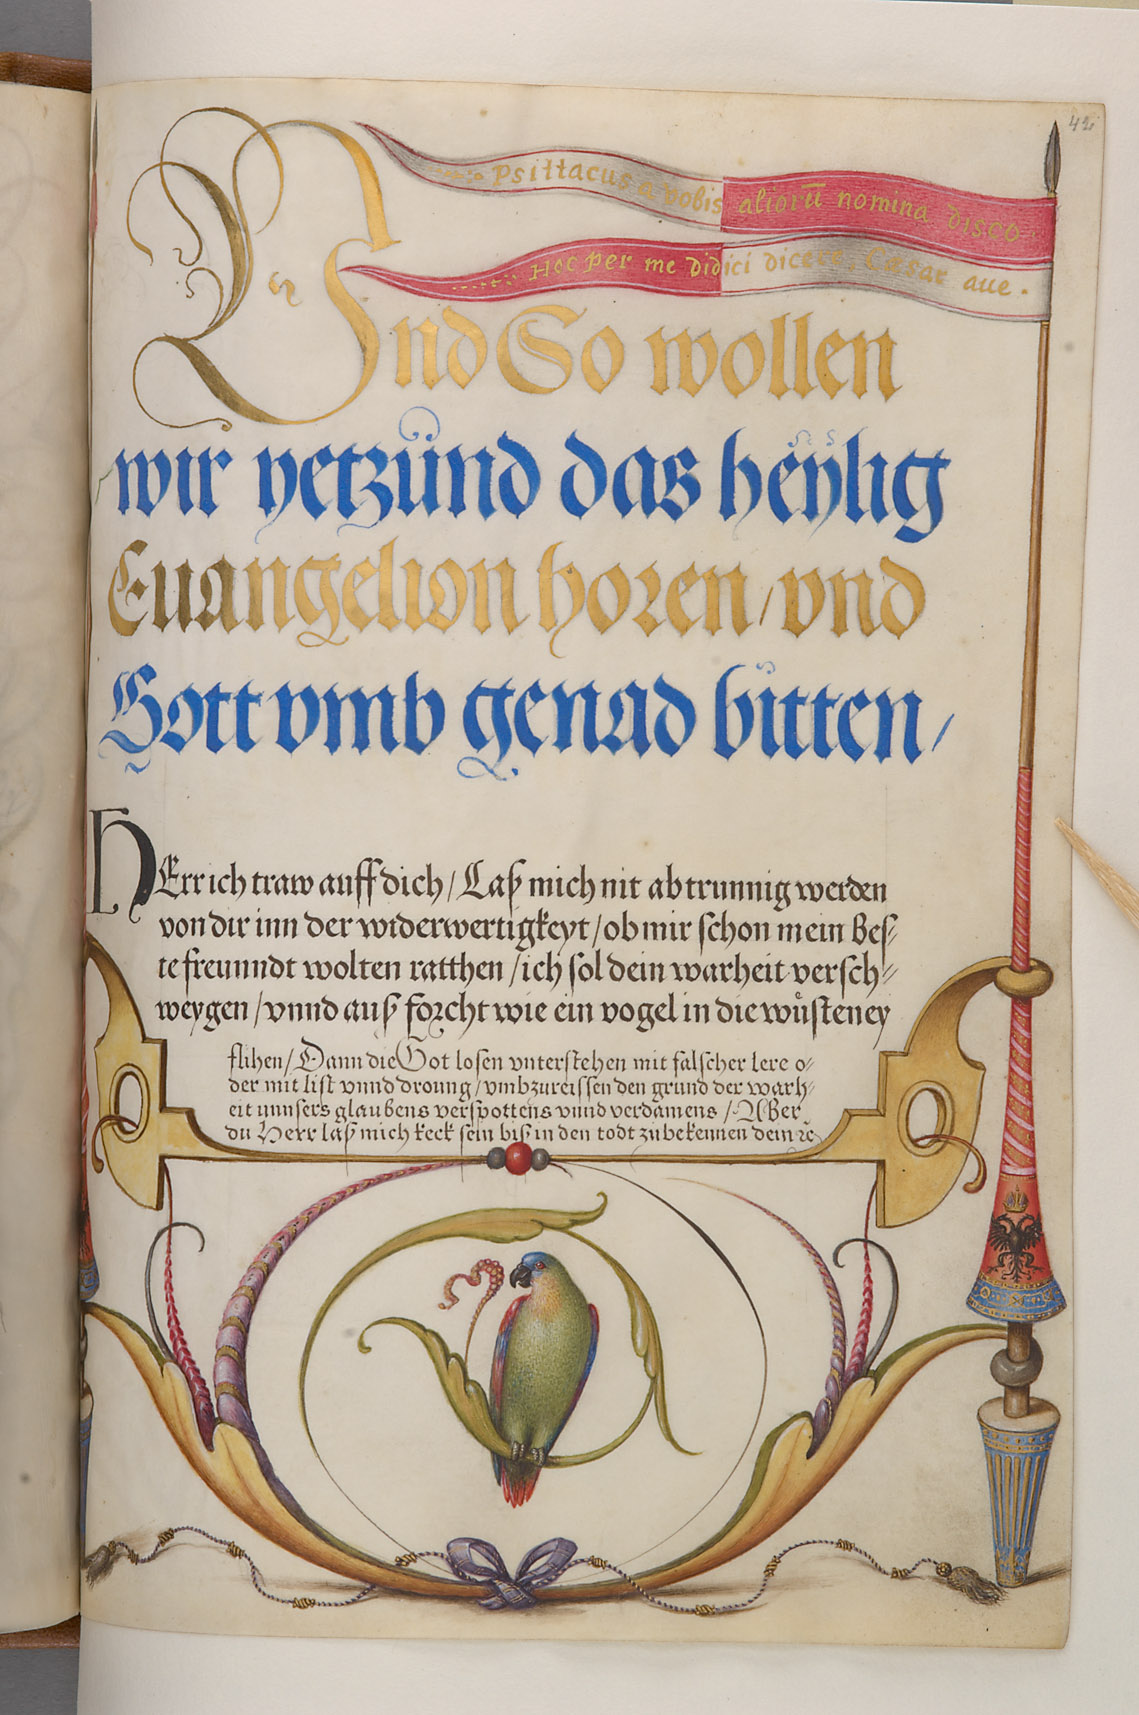 42
Psittacus a vobis aliorū nomina disco
Hoc per me didici dicere, Cæsar aue.
Vnd So wollen
wir yetzünd das heÿlig
Euangelion horen / vnd
Gott vmb genad bitten /
HErr ich traw auff dich / Laß mich nit abtrunnig werden
von dir inn der widerwertigkeyt / ob mir schon mein Bes-
te freunndt wolten ratthen / ich sol dein warheit versch-
weygen / vnnd auß forcht wie ein vogel in die wůsteney
flihen / Dann die Got losen vnterstehen mit falscher lere o-
der mit list vnnd droung / vmbzureissen den grund der warh-
eit unnsers glaubens verspottens vnnd verdamens / Aber
du Herr laß mich keck sein biß in den todt zu bekennen dein ꝛc